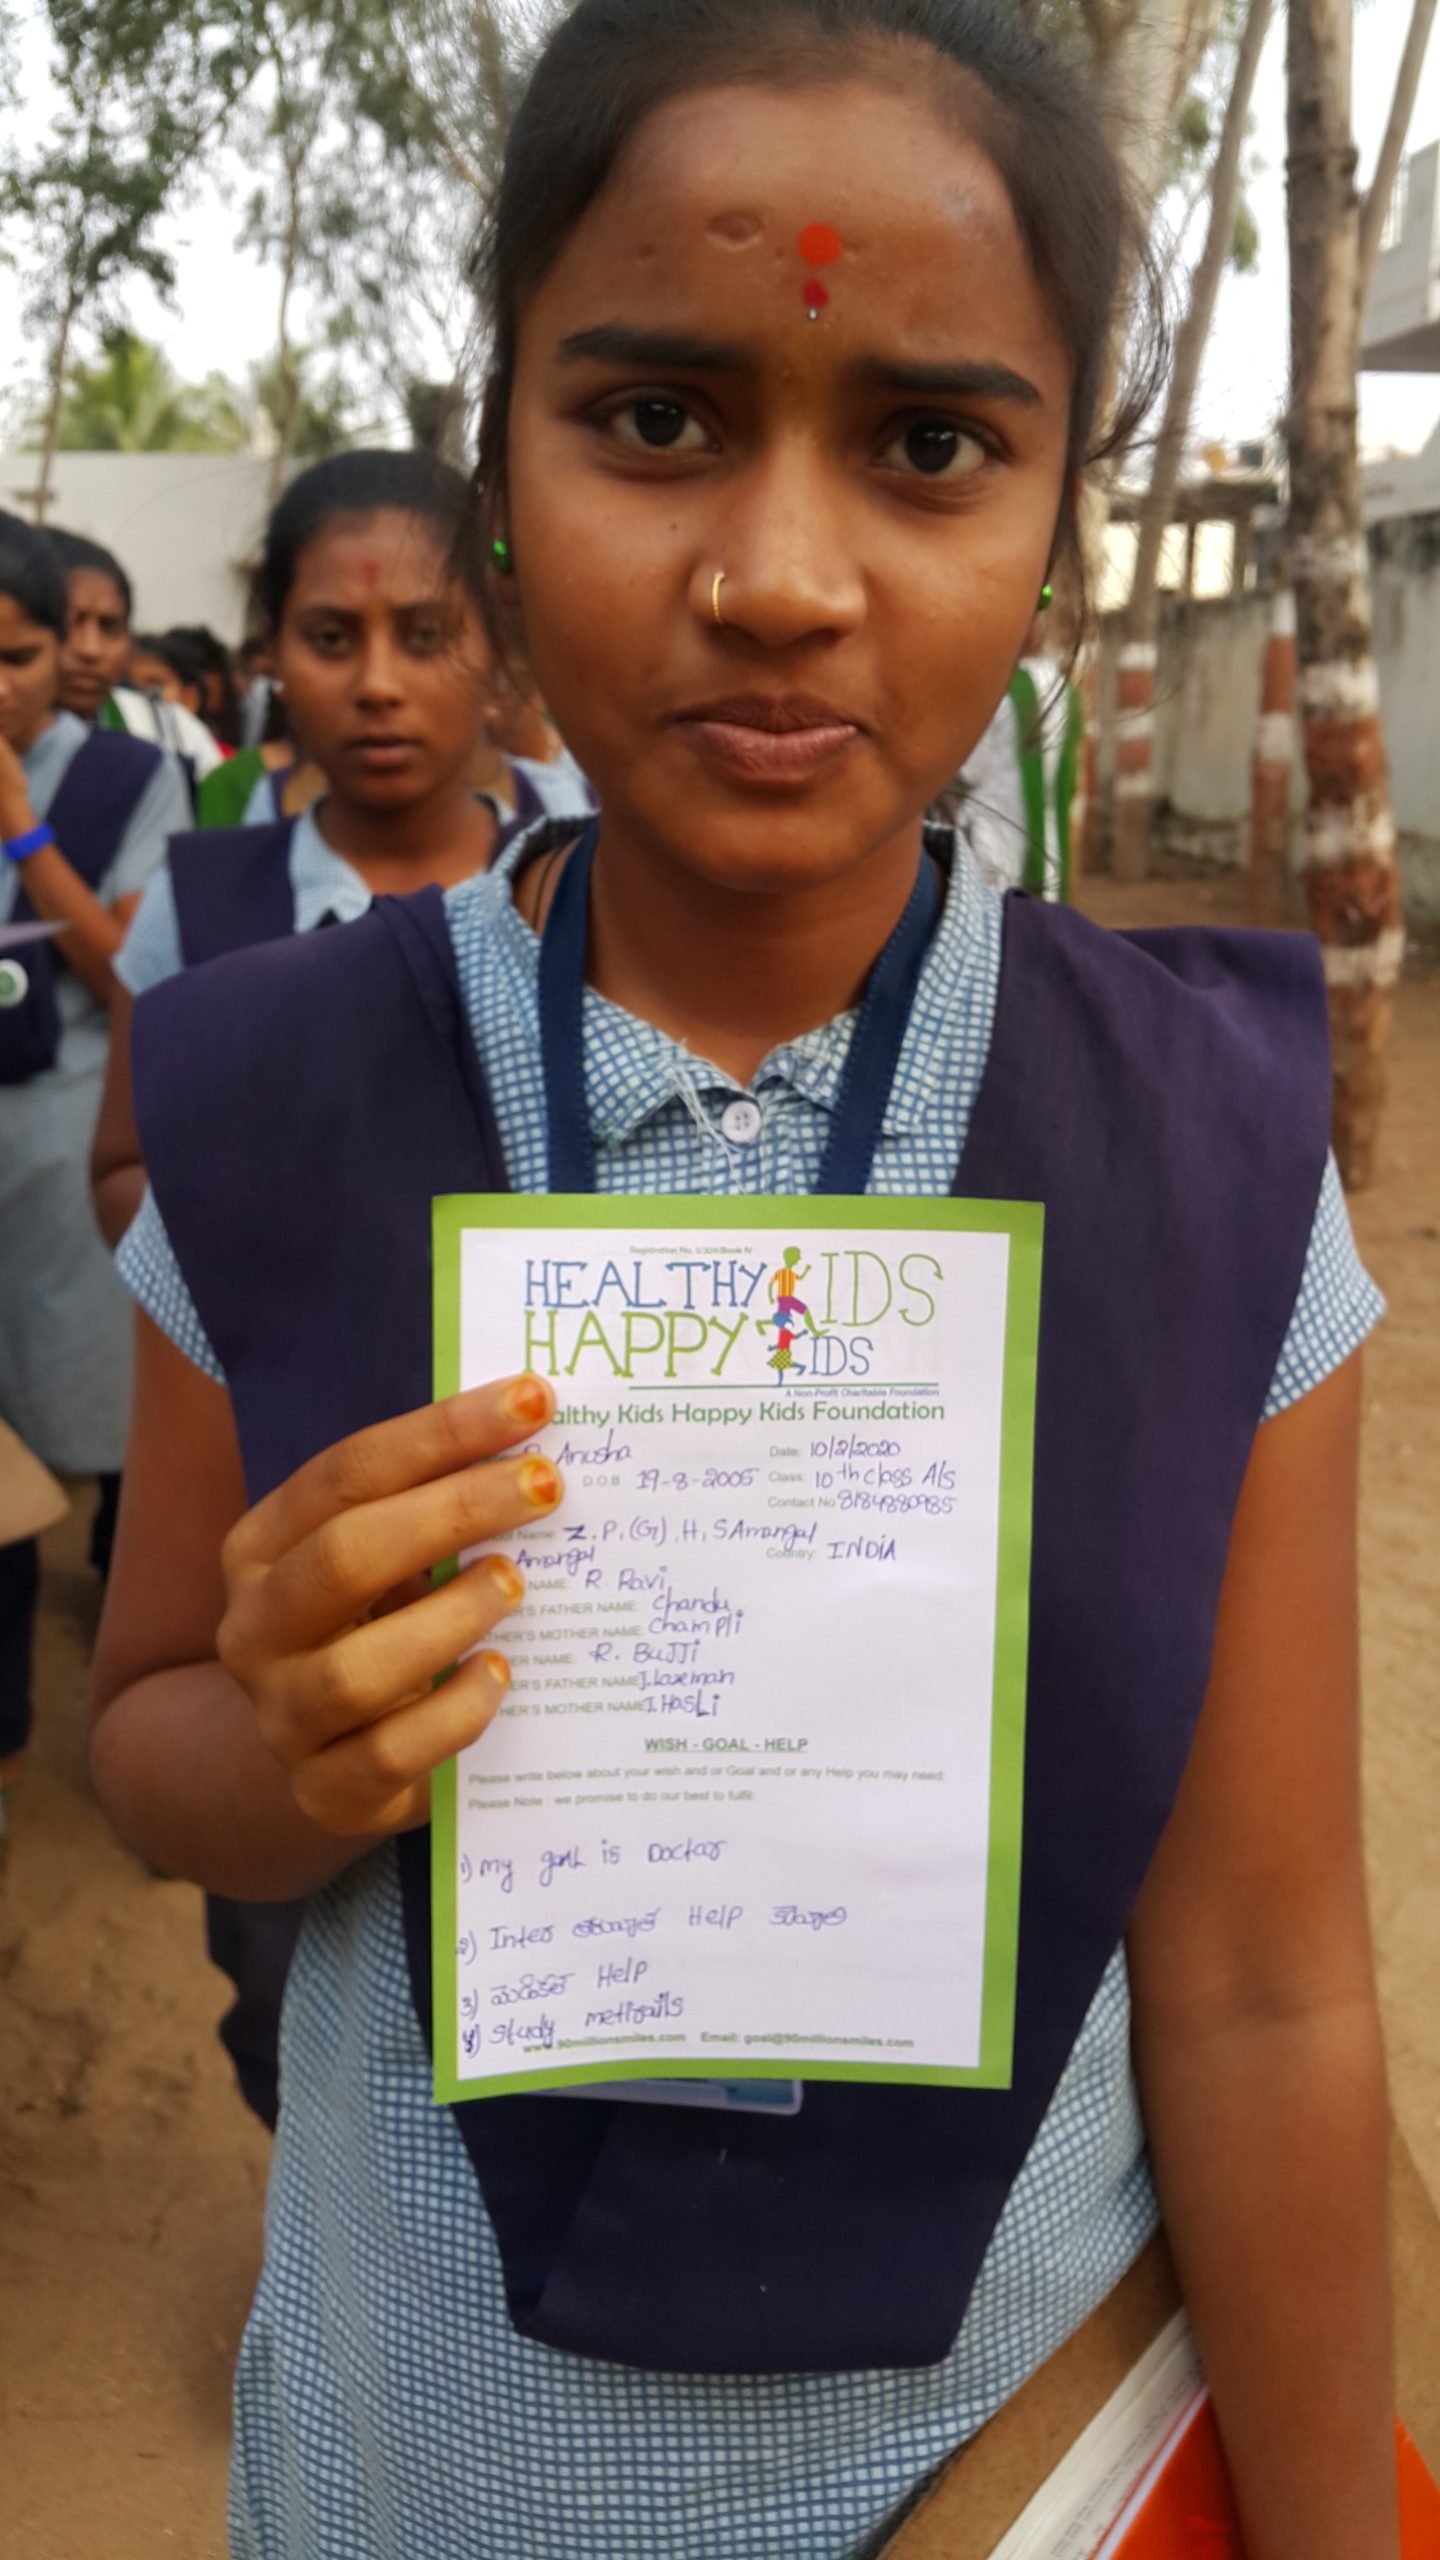 Registration No. 1/2011/Book IV
HEALTHY KIDS
HAPPY KIDS
A Non-Profit Charitable Foundation
althy Kids Happy Kids Foundation
R. Anusha Date: 10/2/2020
D.O.B 19-8-2005 Class: 10th class A/s
Contact No 8184880985
Name: Z.P.(G).H.S Amangal
Amangal Country: INDIA
NAME: R. Ravi
ER'S FATHER NAME: Chandu
THER'S MOTHER NAME: Champli
ER NAME: R. BuJJi
ER'S FATHER NAME J. Laxeman
HER'S MOTHER NAME I. HasLi
WISH - GOAL - HELP
Please write below about your wish and or Goal and or any Help you may need:
Please Note : we promise to do our best to fulfil:
1) my goal is Doctar
2) Inter తరువాత Help కావాలి
3) మెడికల్ Help
4) Study metirails
www.90millionsmiles.com Email: goal@90millionsmiles.com